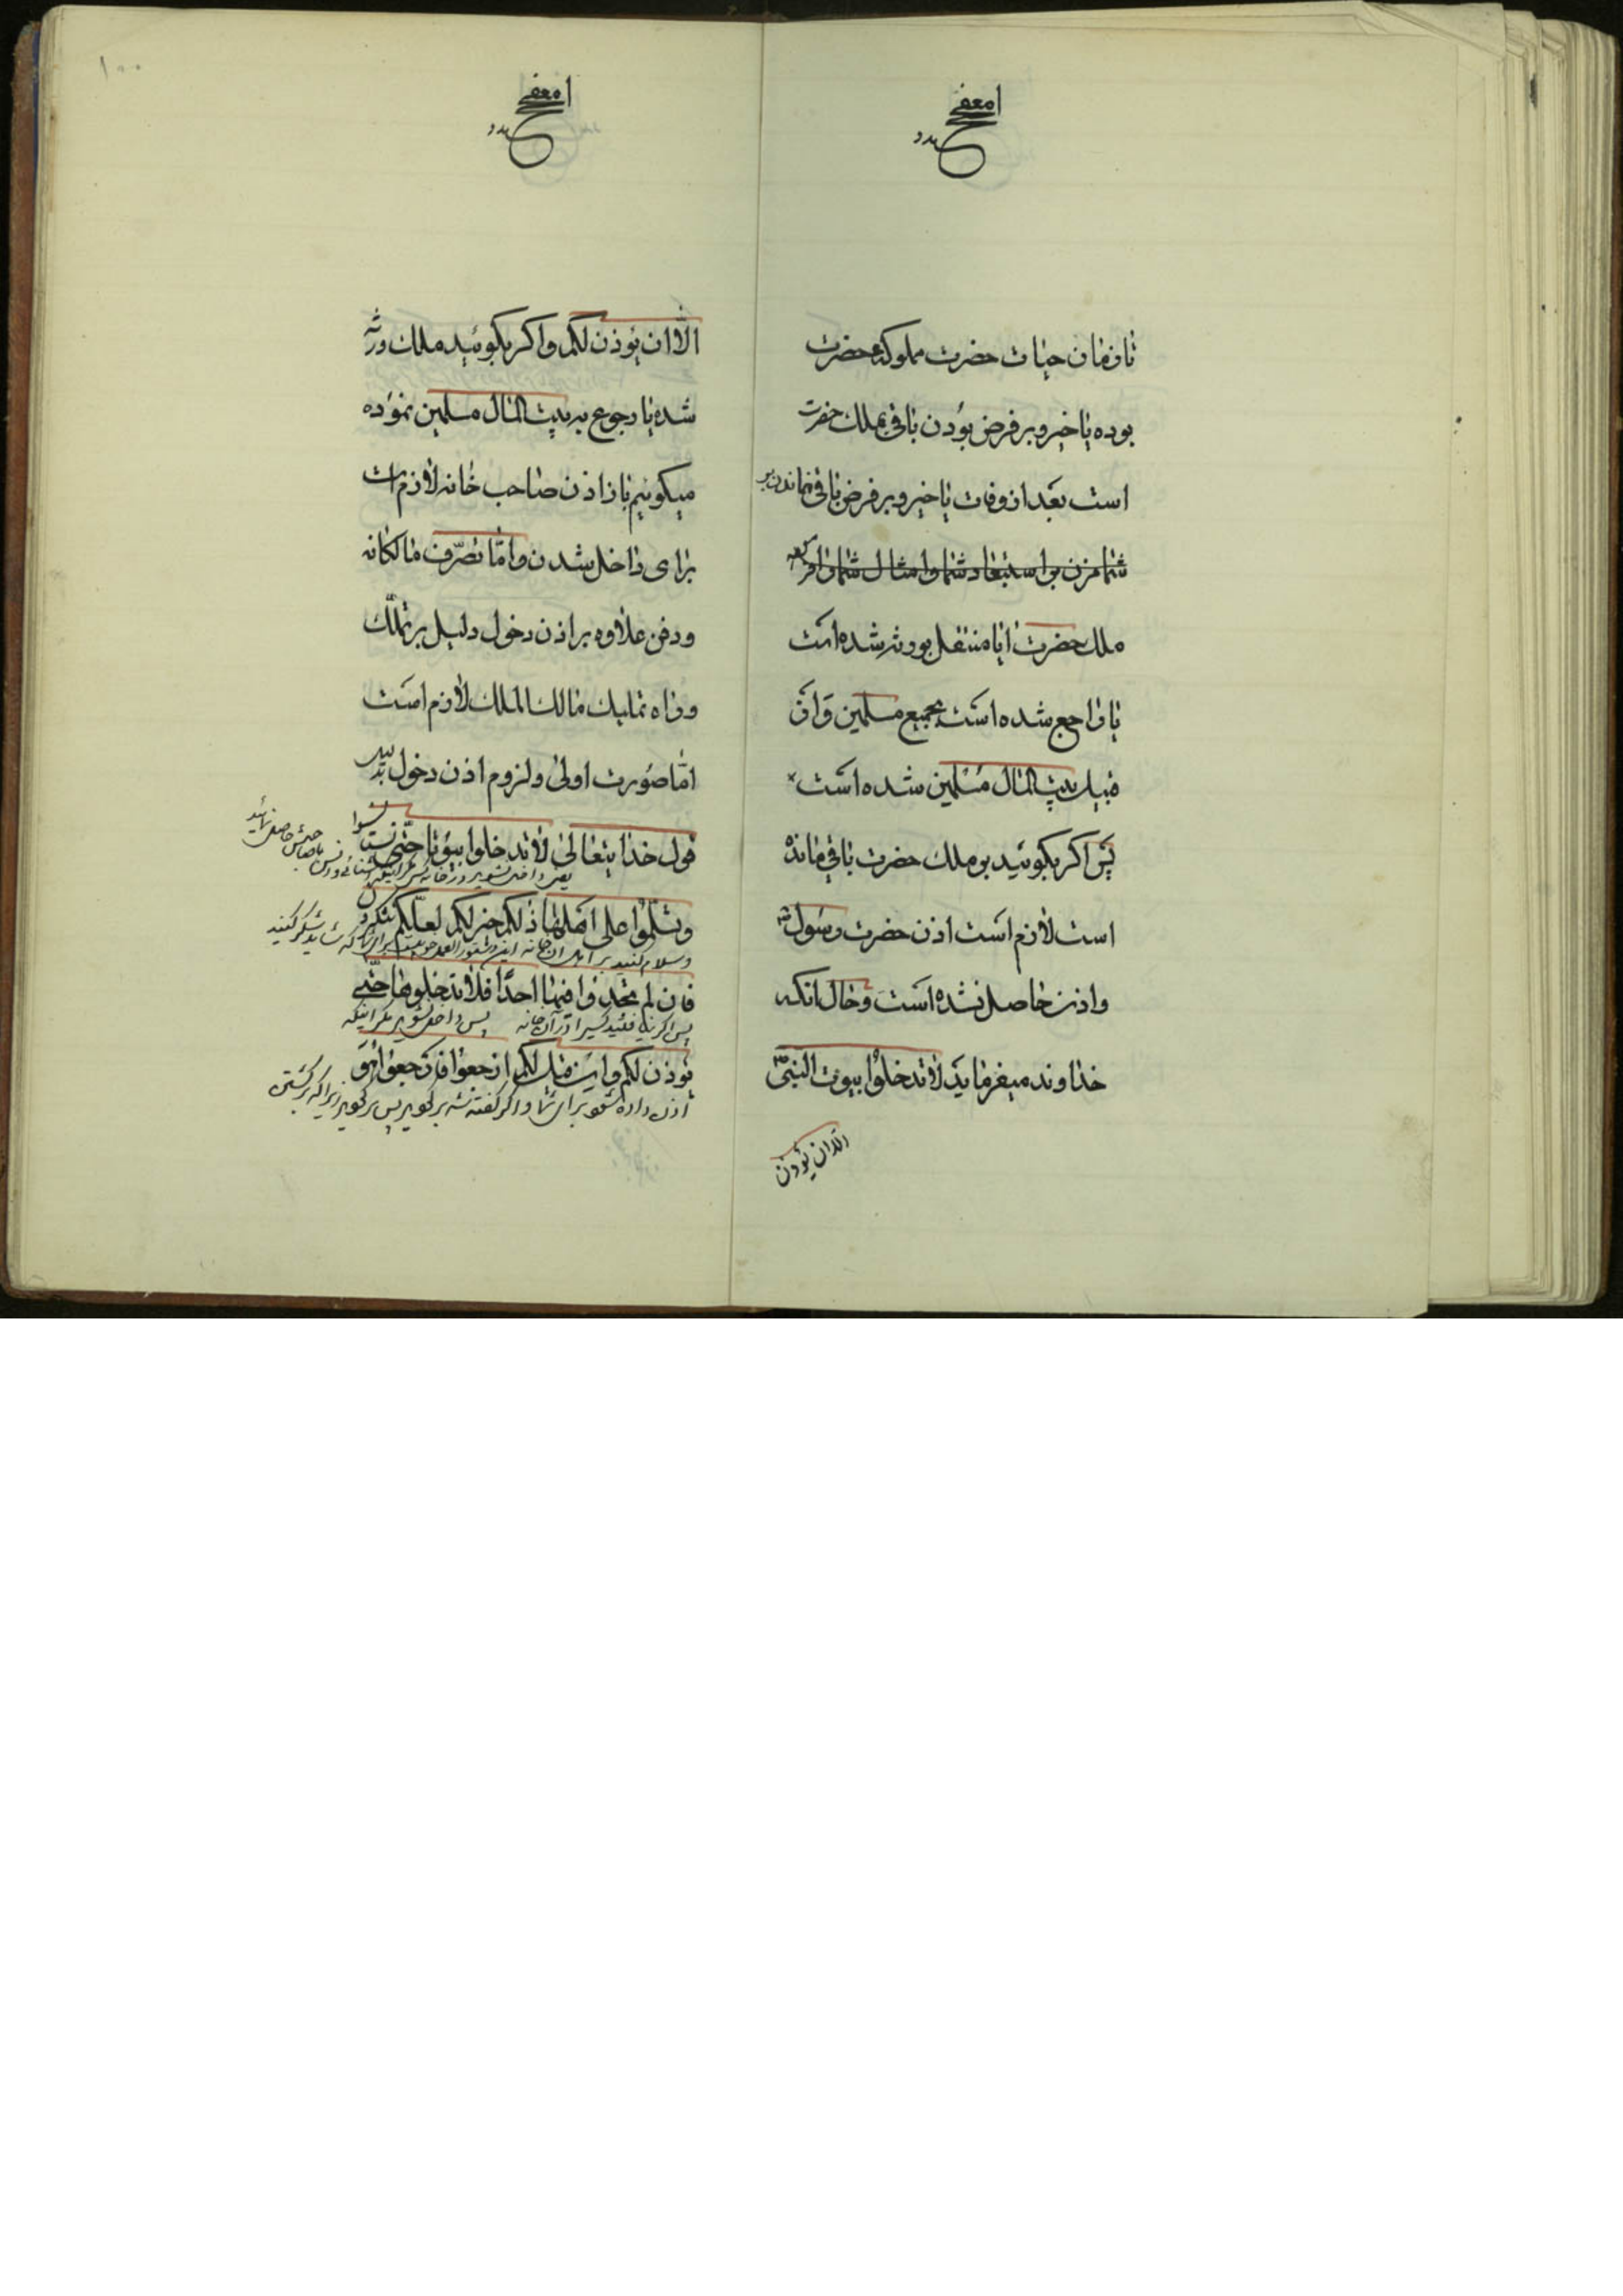 تا زمان حیات حضرت مملوکهٔ حضرت
بوده یا خیر و بر فرض بودن باقی بملک حضرت
است بعد از وفات یا خیر و بر فرض باقی نماندن بر
ملک حضرت ایا منتقل بورثه شده است
یا راجع شده است بجمیع مسلمین و از
قبیل بیت المال مسلمین شده است
پس اکر بکوئید بر ملک حضرت باقی مانده
است لازم است اذن حضرت رسول ص
و اذن حاصل نشده است و حال انکه
خداوند میفرماید لا تدخلوا بیوت النبی ص
الا ان یؤذن
۱۰۰
الا ان یؤذن لکم و اکر بکوئید ملک ورثه
شده یا رجوع به بیت المال مسلمین نموده
میکوئیم باز اذن صاحب خانه لازم است
برای داخل شدن و اما تصرف مالکانه
و دفن علاوه بر اذن دخول دلیل بر تملک
و راه تملیک مالک الملک لازم است
اما صورت اولی و لزوم اذن دخول بدلیل
قول خدایتعالی لا تدخلوا بیوتا حتی تستانسوا
یعنی داخل نشوید در خانه
و تسلموا علی اهلها ذلکم خیر لکم لعلکم تشکرون
و سلام کنید بر اهل ان خانه این دستور العمل خوبیست برای شما که شاید شکر کنید
فان لم تجدوا فیها احدا فلا تدخلوها حتی
پس اکر نیافتید کسیرا در آن خانه پس داخل نشوید مکر اینکه
یؤذن لکم و ان قیل لکم ارجعوا فارجعوا هو
اذن داده شود برای شما و اکر کفته شد برکردید پس برکردید زیرا که برکشتن